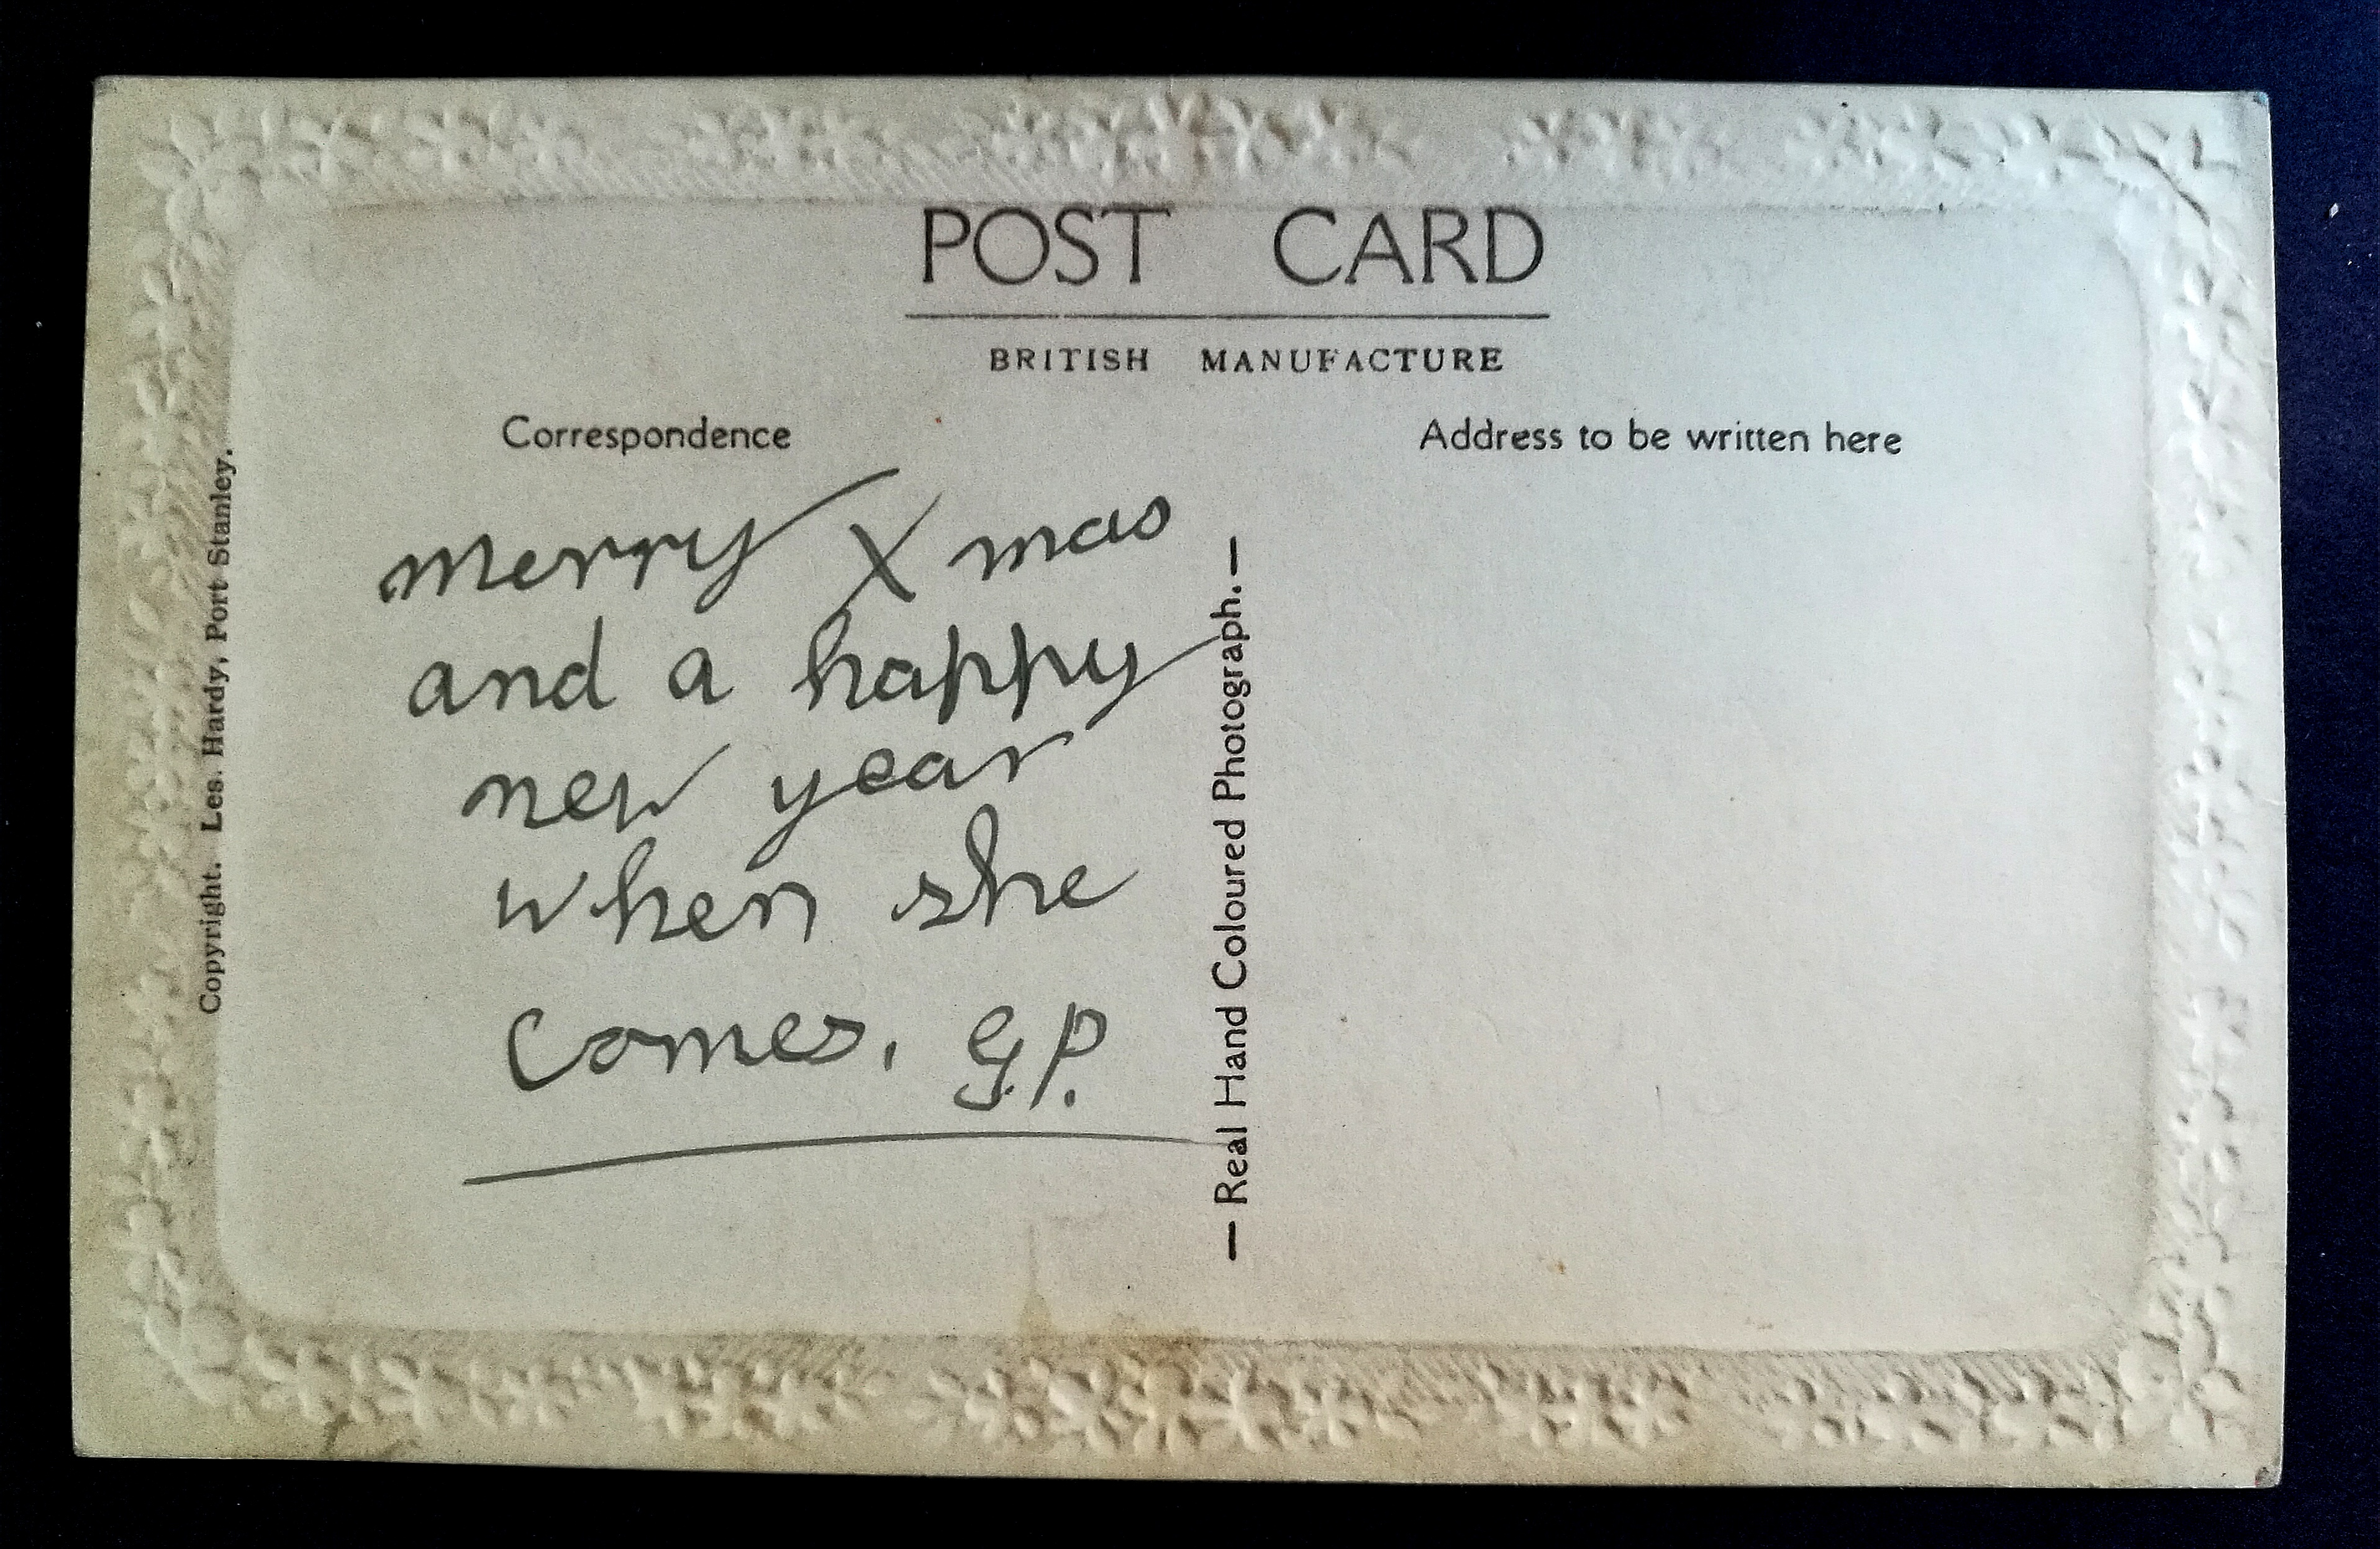 POST CARD
BRITISH MANUFACTURE
Correspondence
Address to be written here
Merry Xmas
and a happy
new year
when she
comes. G.P.
— Real Hand Coloured Photograph. —
Copyright. Les. Hardy, Port Stanley.